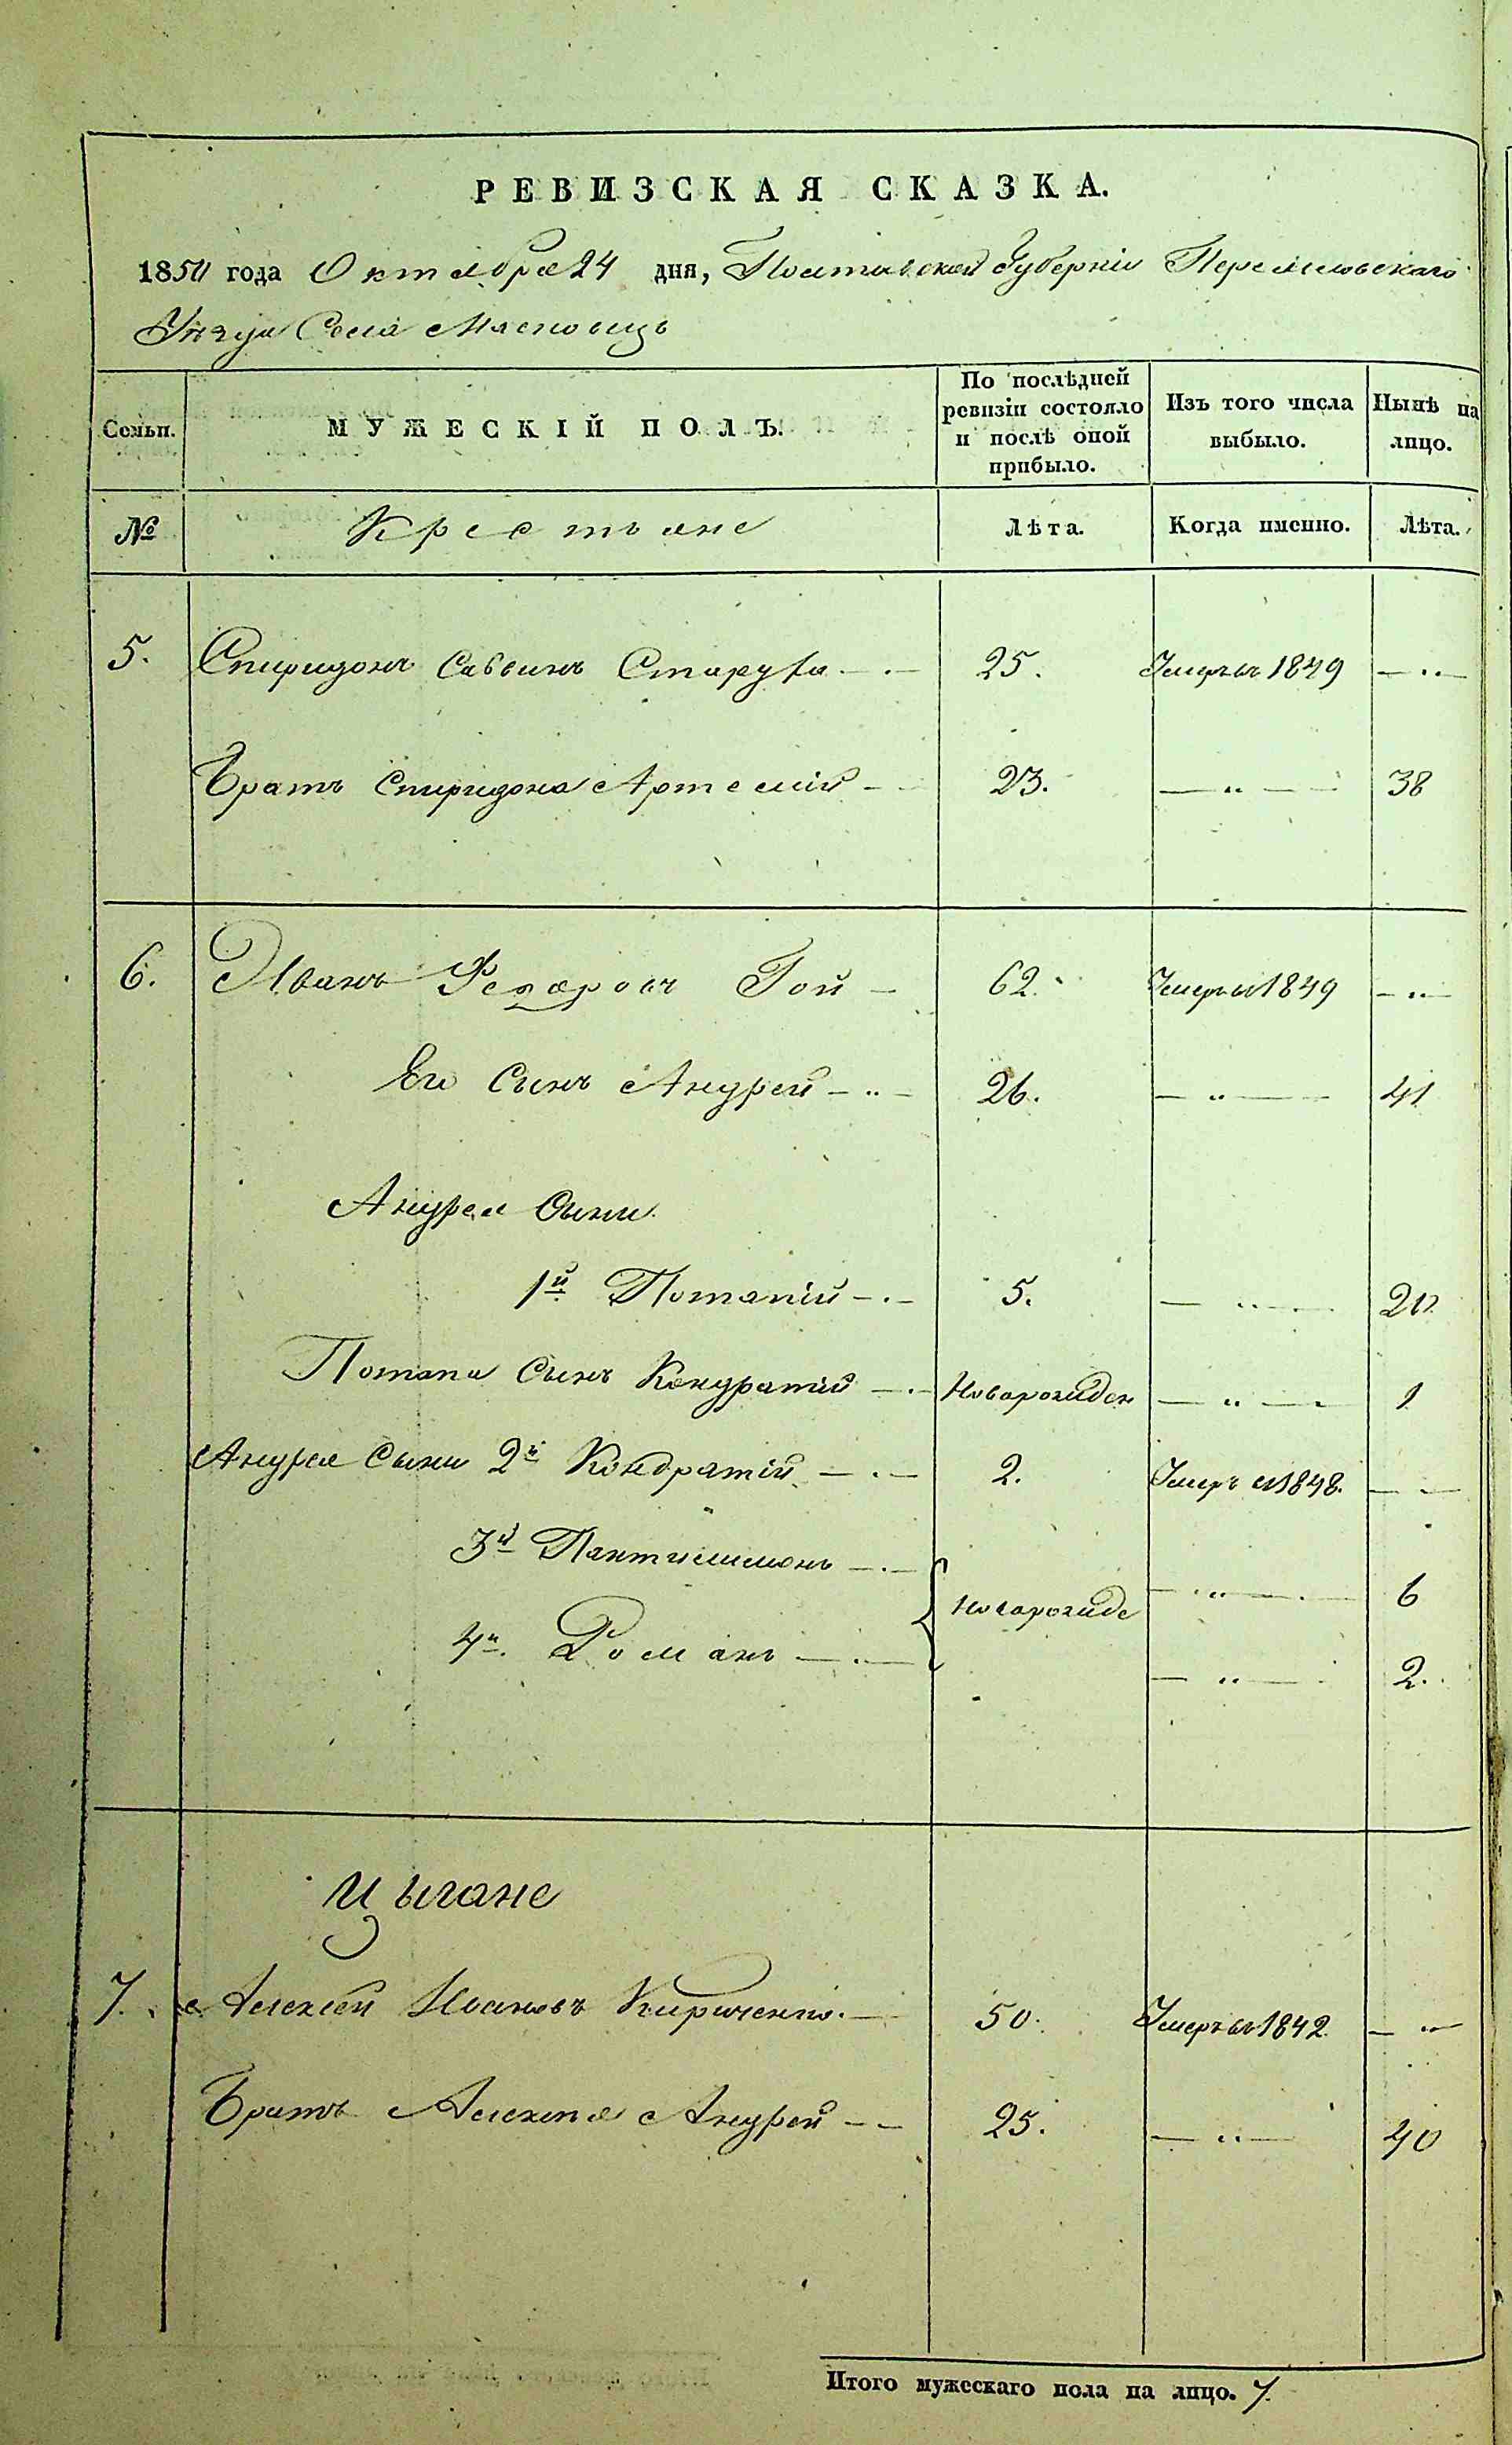 РЕВИЗСКАЯ СКАЗКА.
1850 года Октября 24 дня, Полтавской Губерніи Переяславскаго
Уѣзда Села
Семьи. МУЖЕСКІЙ ПОЛЪ. По послѣдней ревизіи состояло и послѣ оной прибыло. Изъ того числа выбыло. Нынѣ на лицо.
№ Крестьяне Лѣта. Когда именно. Лѣта.
5. Спиридонъ Саввинъ Старуха 25. Умеръ въ 1849 — " —
Братъ Спиридона Артемій — 23. — " — 38
6. Иванъ Федоровъ Гой — 62. Умеръ въ 1849 — " —
Его Сынъ Андрей — " — 26. — " — 41
Андрея Сыни
1й Потапій — . — 5. — " — 20
Потапа Сынъ Кондратій — . — Новорожден — " — 1
Андрея Сыни 2й Кондратій — . — 2. Умеръ въ 1848. — —
3й Пантилимонъ — . — Новорожде — " — 6
4й. Романъ — . — — " — 2.
Цыгане
7. Алексѣй Ивановъ Кириченко. — 50. Умеръ въ 1842 — " —
Братъ Алексѣя Андрей — — 25. — " — 40
Итого мужескаго пола на лицо. 7.